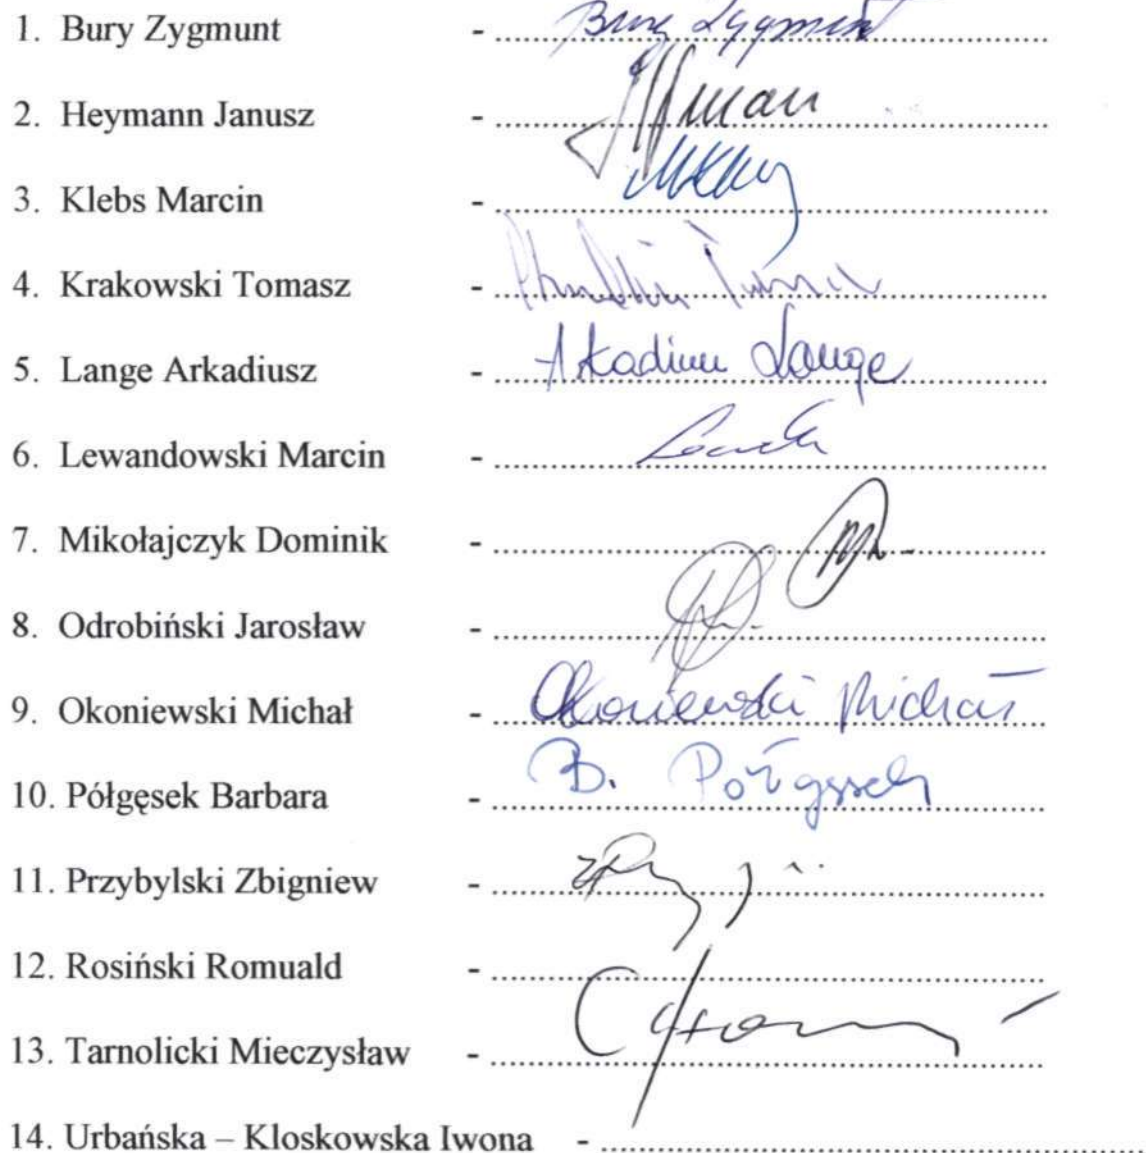 1. Bury Zygmunt - Bury Zygmunt
2. Heymann Janusz -
3. Klebs Marcin -
4. Krakowski Tomasz -
5. Lange Arkadiusz - Arkadiusz Lange
6. Lewandowski Marcin -
7. Mikołajczyk Dominik -
8. Odrobiński Jarosław -
9. Okoniewski Michał - Okoniewski Michał
10. Półgęsek Barbara - B. Półgęsek
11. Przybylski Zbigniew -
12. Rosiński Romuald -
13. Tarnolicki Mieczysław -
14. Urbańska – Kloskowska Iwona -